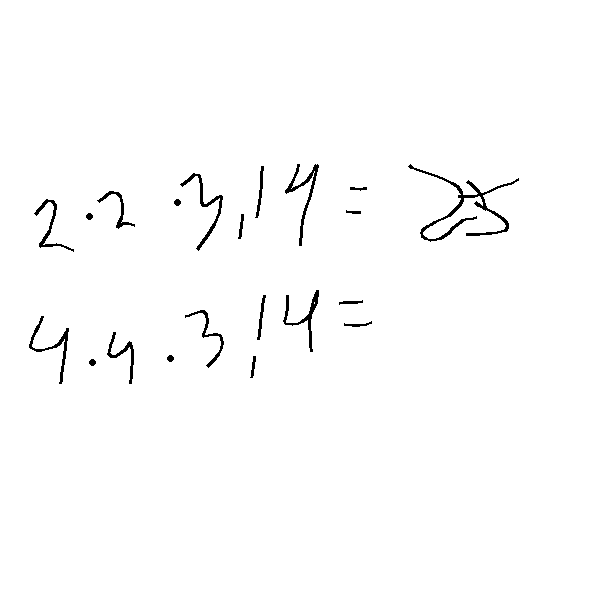 2 · 2 · 3,14 =
4 · 4 · 3,14 =